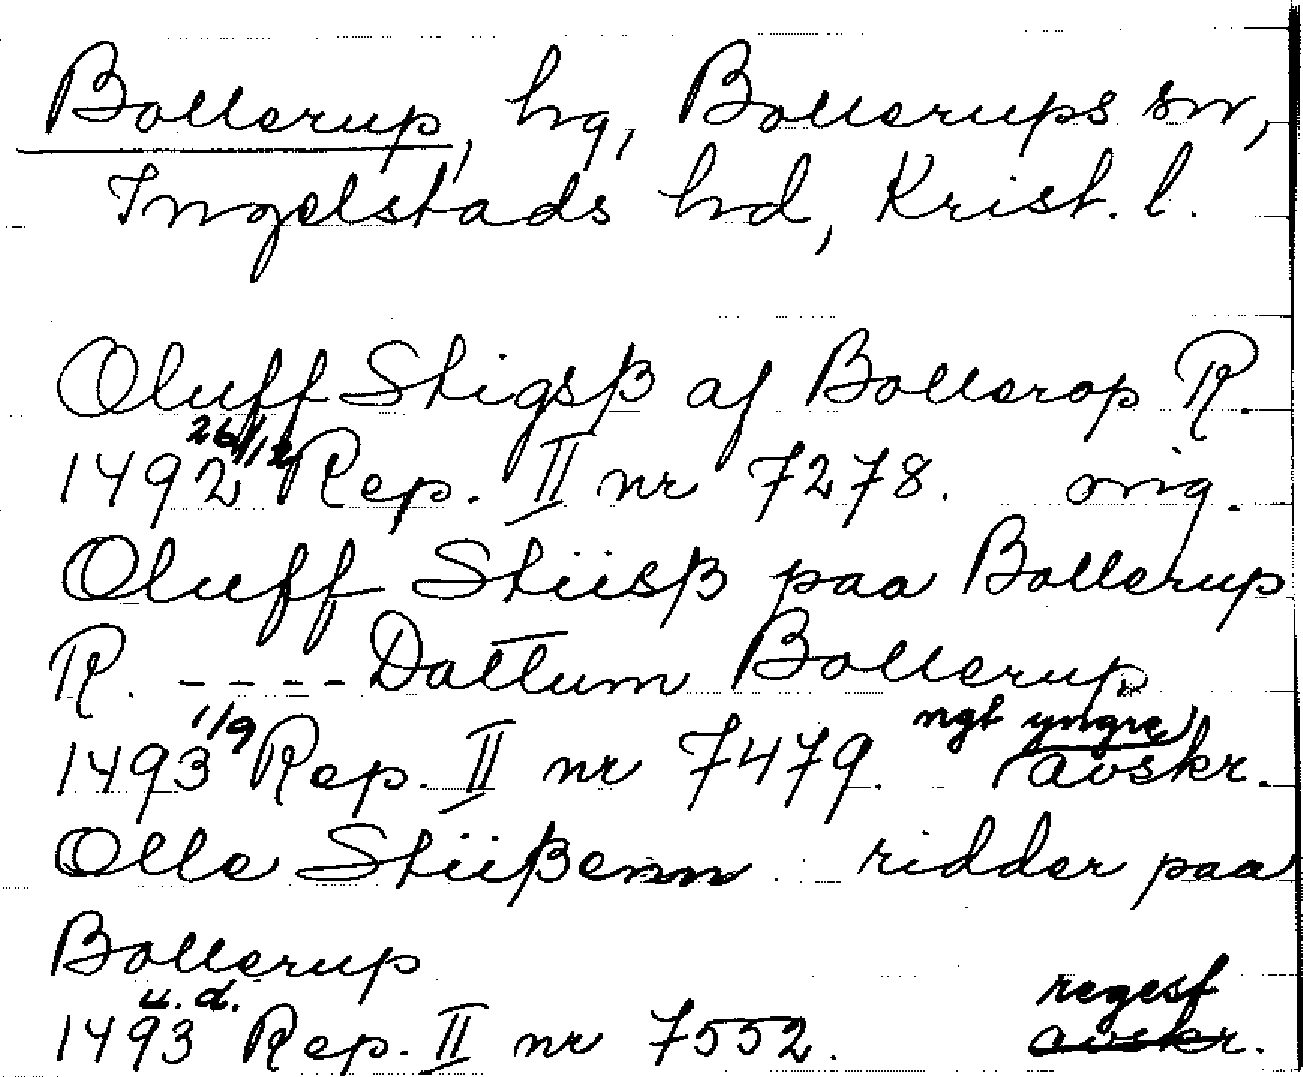 Bollerup, hg, Bollerups sn,
Ingelstads hd, Krist. l.
Oluff Stigsß af Bollerop R.
1492 26/12 Rep. II nr 7278. orig.
Oluff Stiisß paa Bollerup
R. ---- Dattum Bollerup
1493 1/9 Rep. II nr 7479. ngt yngre avskr.
Olle Stiißenn ridder paa
Bollerup
1493 u. d. Rep. II nr 7552. regest avskr.